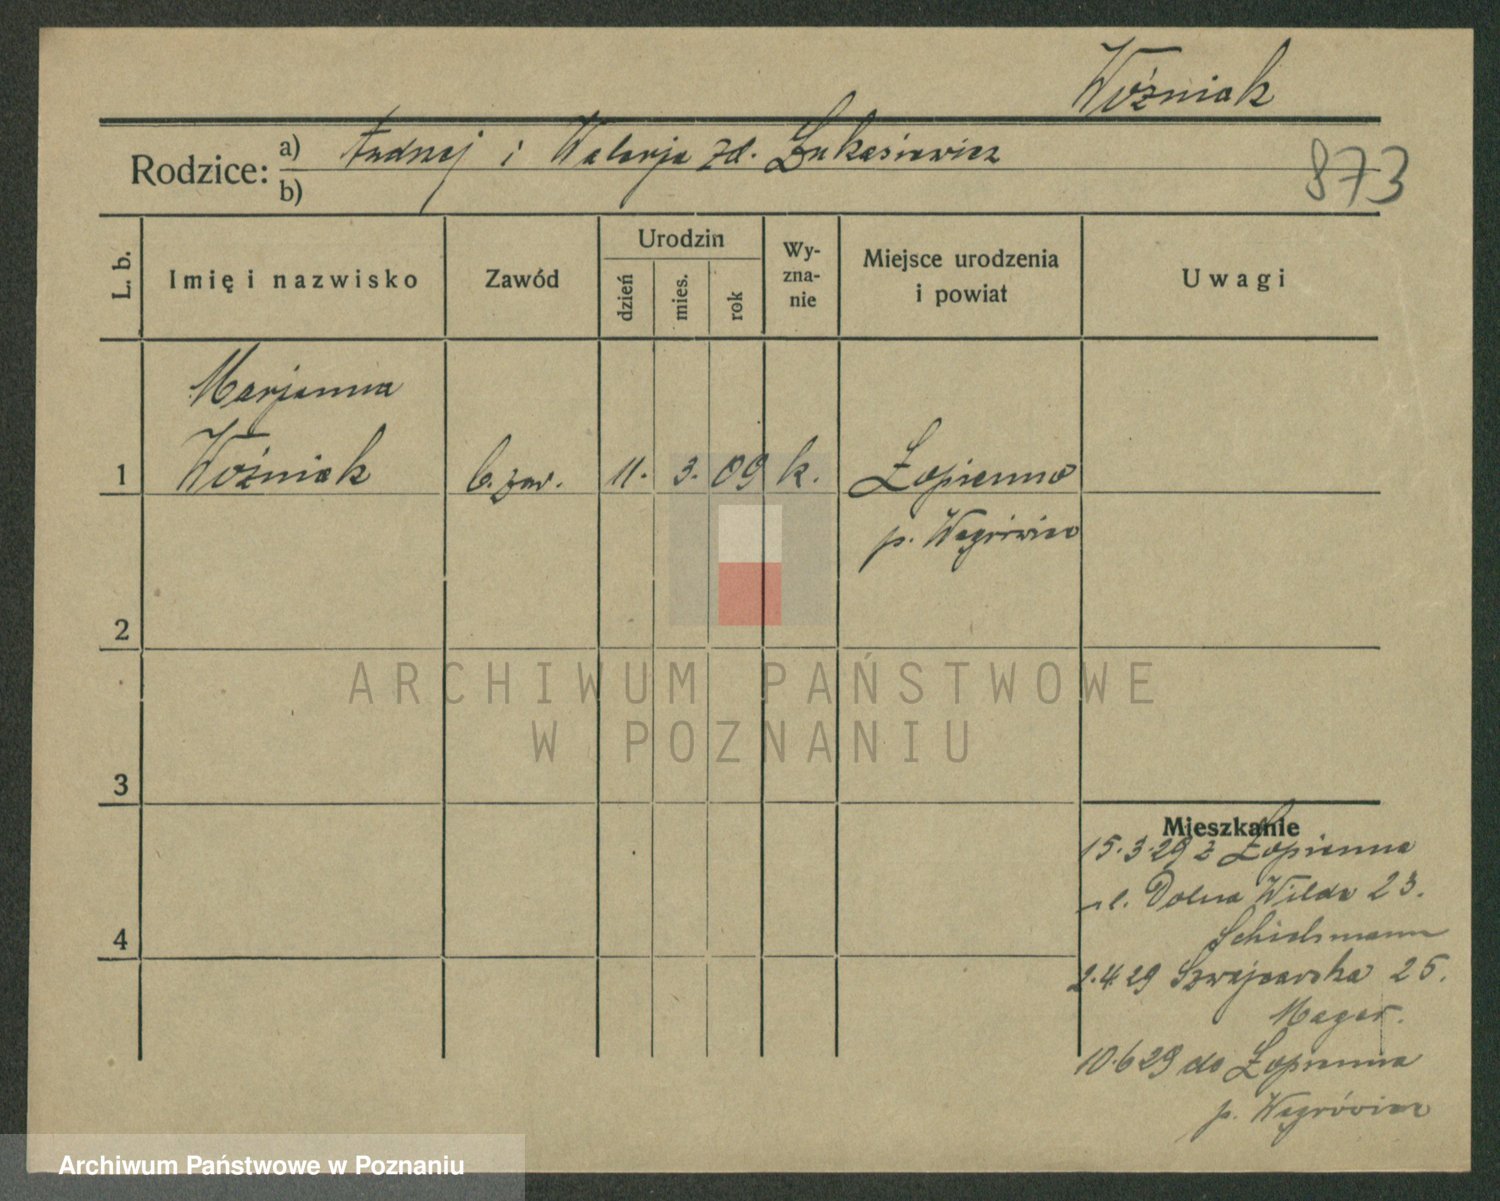 Woźniak
Rodzice: a) Andrzej i Walerja zd. Łukasiewicz
b)
873
L. b.
Imię i nazwisko
Zawód
Urodzin
dzień
mies.
rok
Wy-
zna-
nie
Miejsce urodzenia
i powiat
Uwagi
Marjanna
1 Woźniak b. zaw. 11. 3. 09 k. Łopienno
p. Wągrówiec
2
3
4
Mieszkanie
15.3.29 z Łopienna
ul. Dolna Wilda 23.
2.4.29 Szwajcarska 25.
Mager.
10.6 29 do Łopienna
p. Wągrówiec
ARCHIWUM PAŃSTWOWE
W POZNANIU
Archiwum Państwowe w Poznaniu